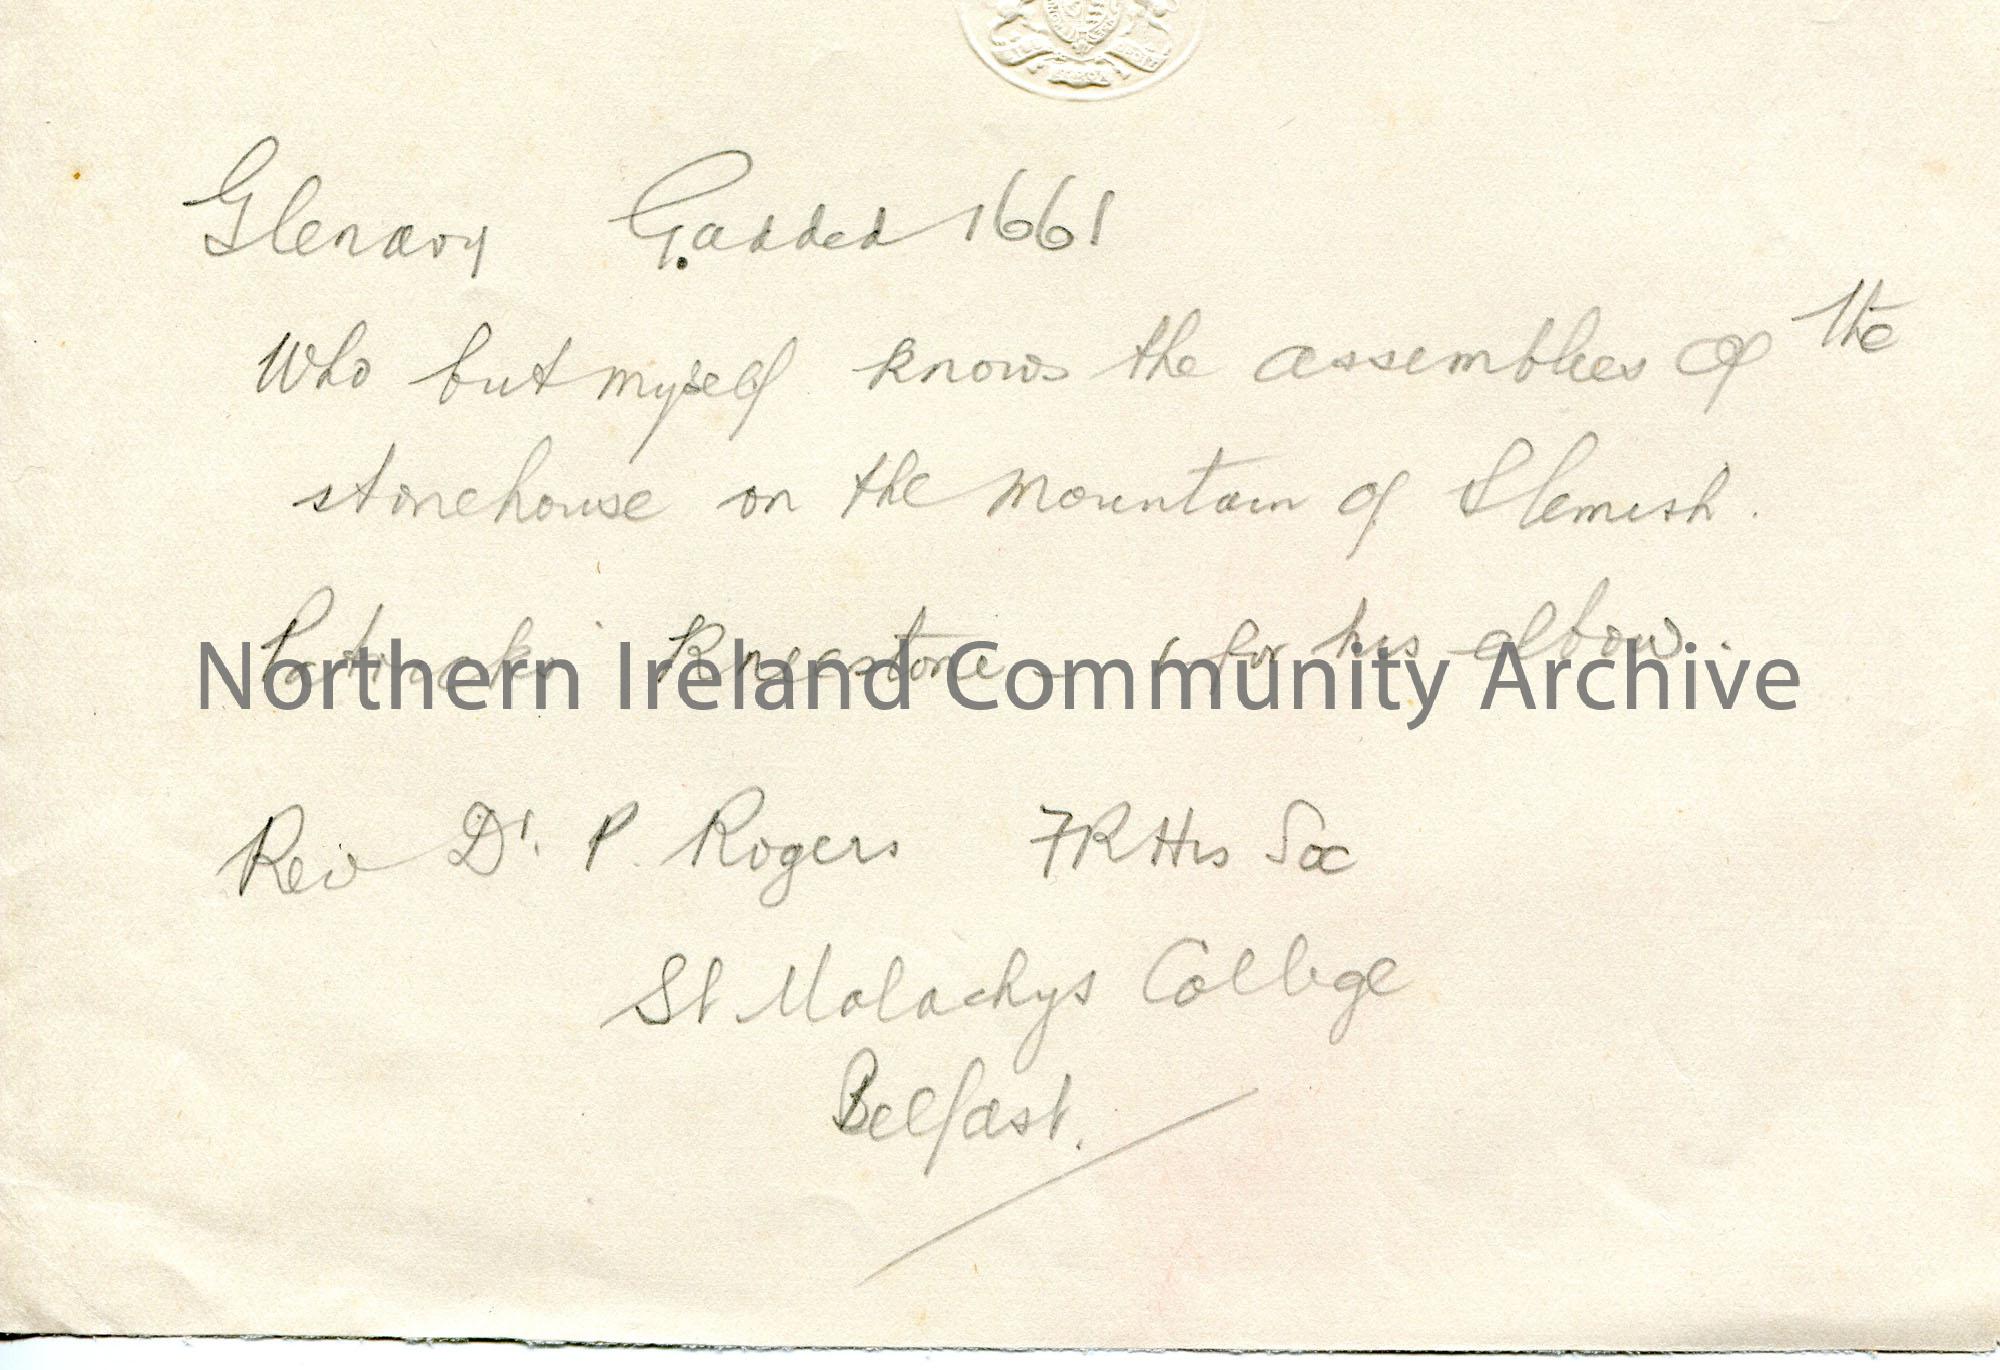 Glenavy G. added 1661
Who but myself knows the assemblies of the
stonehouse on the mountain of Slemish.
Patricks' Kneestone – for his elbow.
Northern Ireland Community Archive
Rev Dr. P. Rogers FRHis Soc
St Malachys College
Belfast.